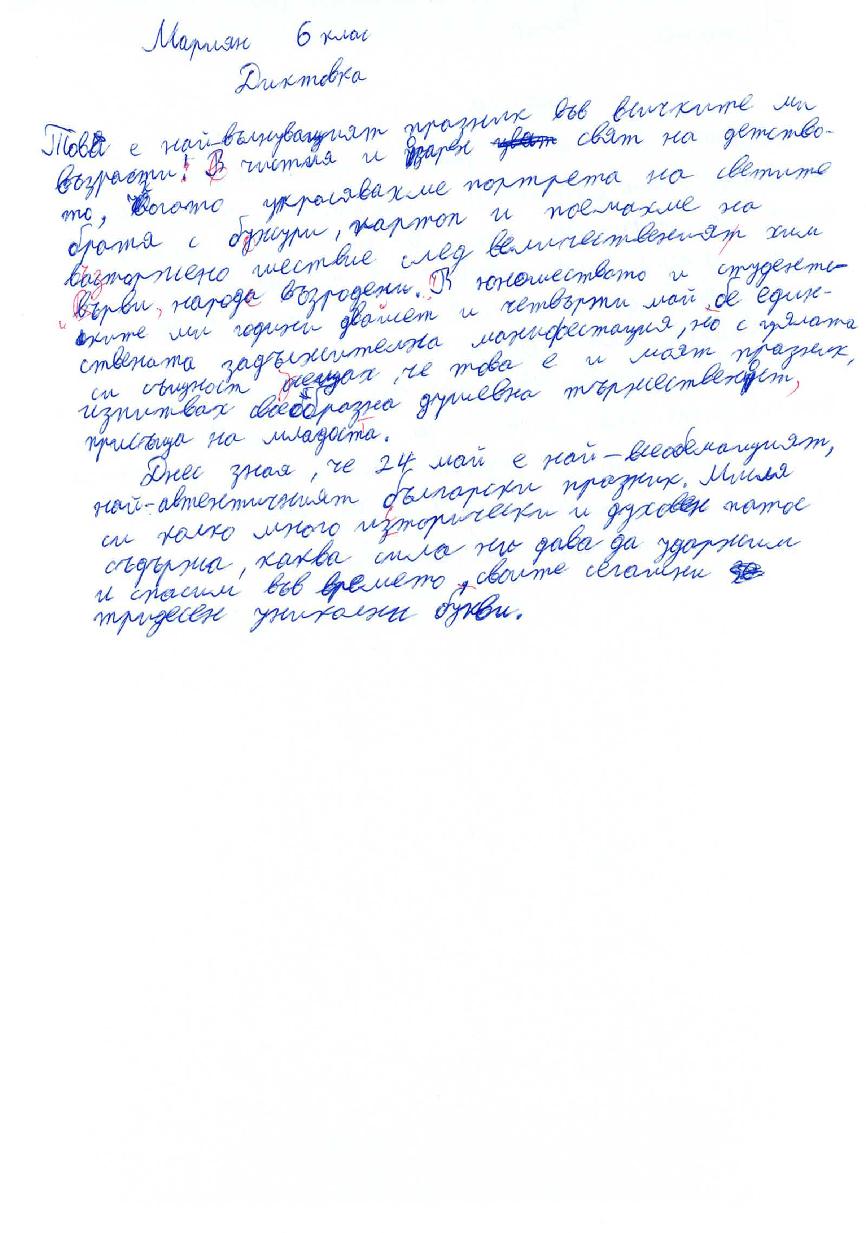 Мариян 6 клас
Диктовка
Това е най-вълнуващият празник във всичките ми
възрасти! В чистия и шарен свят на детство-
то, когато украсявахме портрета на светите
братя с божури, картон и поемахме на
възторжено шествие след величественият химн
"Върви, народе възродени." В юношеството и студентс-
ките ми години двайсет и четвърти май бе един-
ствената задължителна манифестация, но с цялата
си същност усещах, че това е и моят празник,
изпитвах своеобразна душевна тържественост,
присъща на младоста.
Днес зная, че 24 май е най-всеобемащият,
най-автентичният български празник. Мисля
си колко много изторически и духовен патос
съдържа, каква сила ни дава да удържим
и спасим във времето, своите сегашни
тридесен уникални букви.